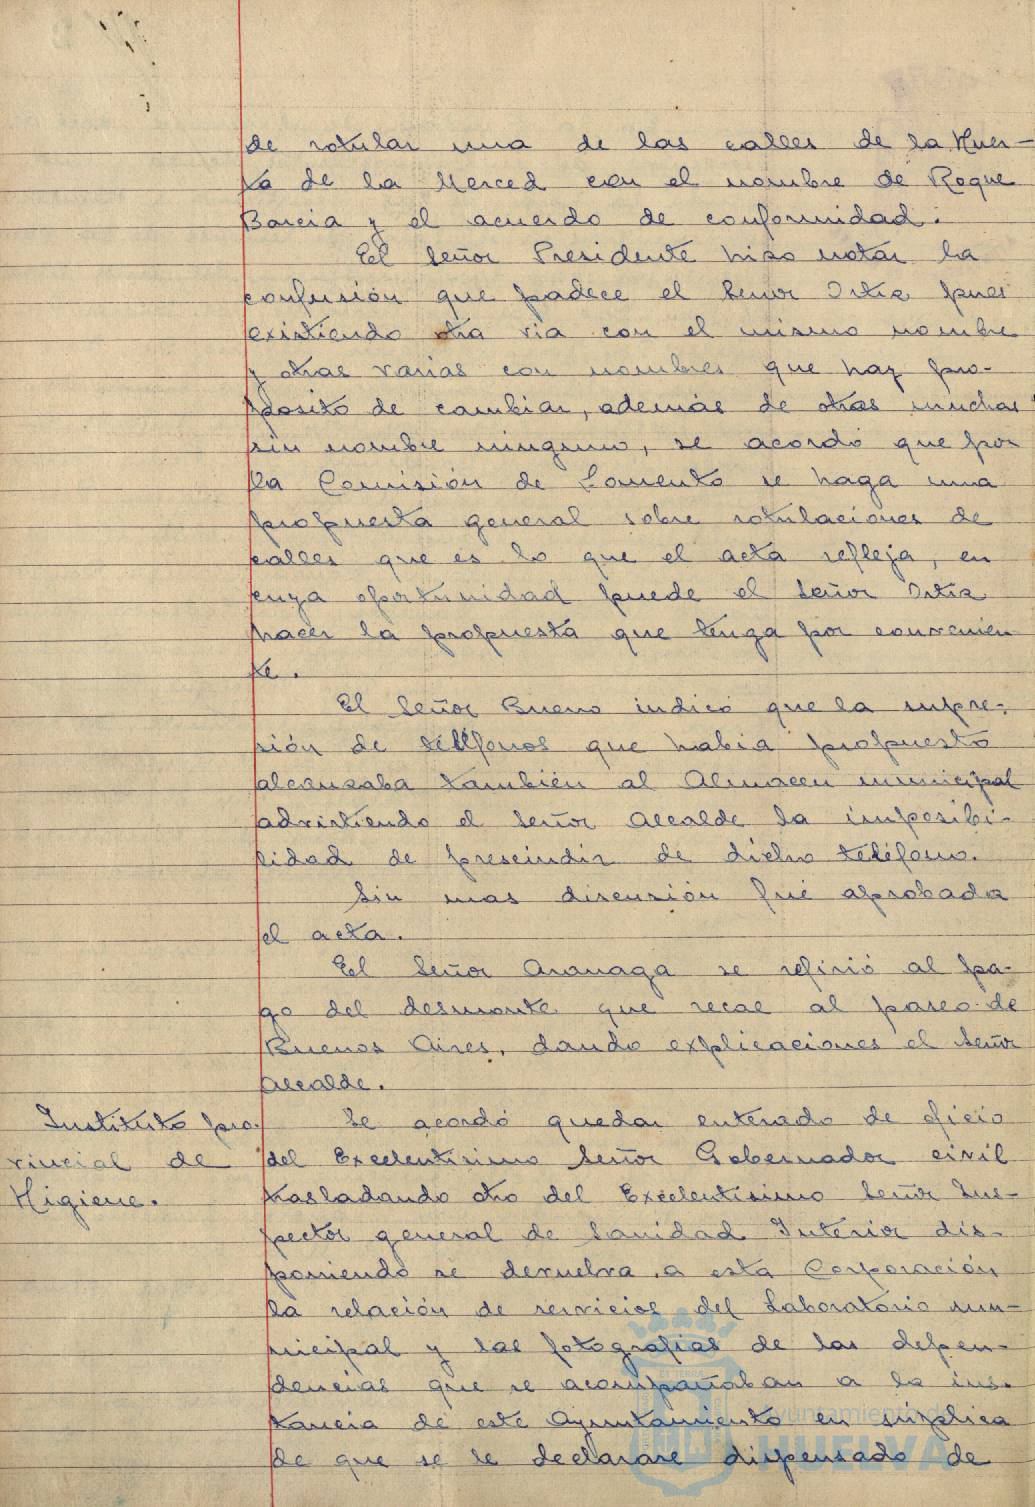 de rotular una de las calles de la Huer-
ta de la Merced con el nombre de Roque
Barcia y el acuerdo de conformidad.
El Señor Presidente hizo notar la
confusión que padece el Señor Ortiz pues
existiendo otra via con el mismo nombre
y otras varias con nombres que hay pro-
posito de cambiar, además de otras muchas
sin nombre ninguno, se acordó que por
la Comisión de Fomento se haga una
propuesta general sobre rotulaciones de
calles que es lo que el acta refleja, en
cuya oportunidad puede el Señor Ortiz
hacer la propuesta que tenga por convenien
te.
El Señor Bueno indicó que la supre-
sión de teléfonos que habia propuesto
alcanzaba también al Almacen municipal
advirtiendo el Señor Alcalde la imposibi-
lidad de prescindir de dicho teléfono.
Sin mas discusión fué aprobada
el acta.
El Señor Aranaga se refirió al pa-
go del desmonte que recae al paseo de
Buenos Aires, dando explicaciones el Señor
Alcalde.
Instituto pro-
vincial de
Higiene.
Se acordó quedar enterado de oficio
del Excelentisimo Señor Gobernador civil
trasladando otro del Excelentisimo Señor Ins-
pector general de Sanidad Interior dis-
poniendo se devuelva a esta Corporación
la relación de servicios del Laboratorio mu-
nicipal y las fotografias de las depen-
dencias que se acompañaban a la ins-
tancia de este Ayuntamiento en súplica
de que se le declarare dispensado de
Ayuntamiento de
HUELVA